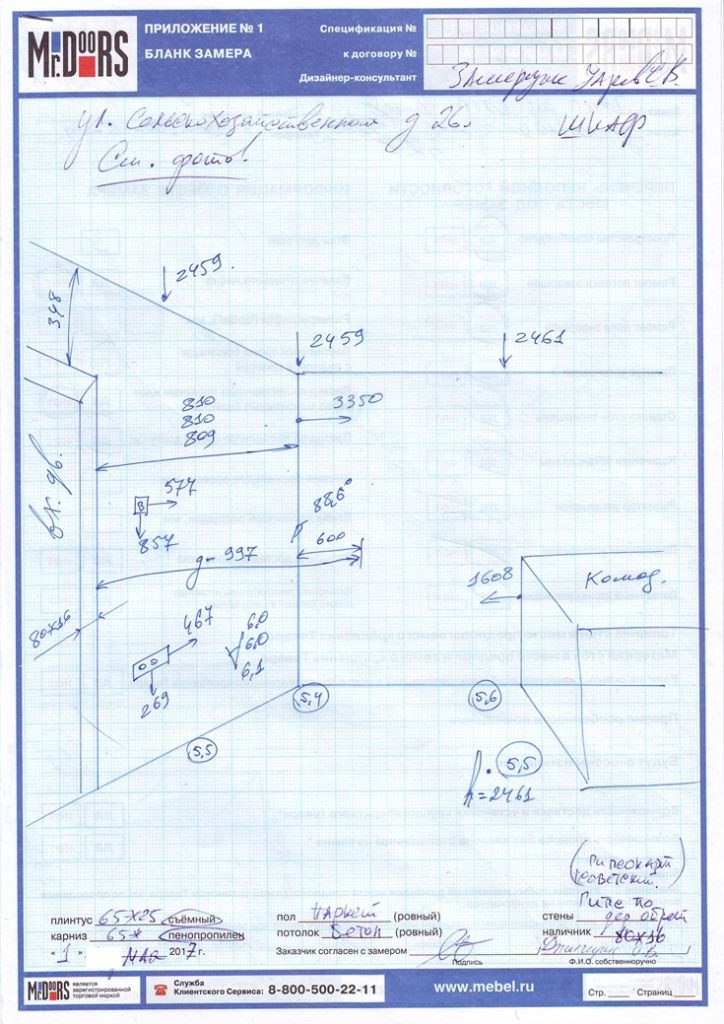 Mr.DOORS
ПРИЛОЖЕНИЕ № 1
БЛАНК ЗАМЕРА
Спецификация №
к договору №
Дизайнер-консультант
ул. Сельскохозяйственная д 26.
Шкаф
См. фото!
2459.
348
2459
2461
810
810
809
3350
вх. дв.
В
577
857
88,6°
600
д-997
1608
Комод.
80х16
467
6,0
6,0
6,1
269
5,5
5,4
5,6
5,5
h=2461
(Гипсокарт
советский.)
Гипс по
плинтус 65х25 съёмный
пол паркет (ровный)
стены дер обрет
карниз 65* пенопропилен
потолок Бетон (ровный)
наличник 80х16
"1" мая 2017 г.
Заказчик согласен с замером
Подпись
Ф.И.О. собственноручно
Mr.DOORS
является
зарегистрированной
торговой маркой
Служба
Клиентского Сервиса: 8-800-500-22-11
www.mebel.ru
Стр. Страниц